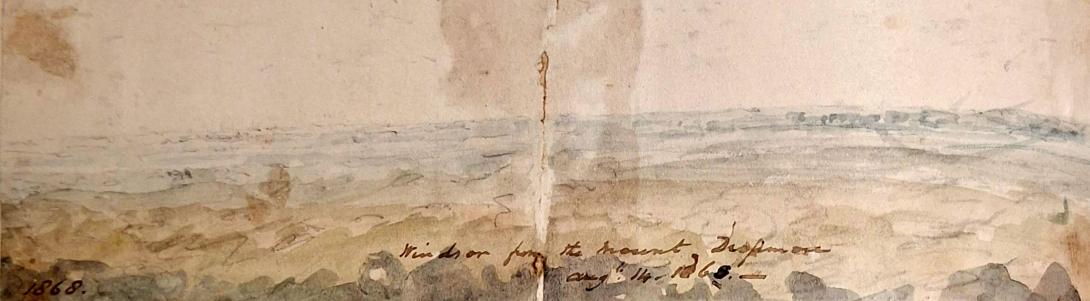 Windsor from the Mount Dropmore
Augt. 14. 1868. —
1868.